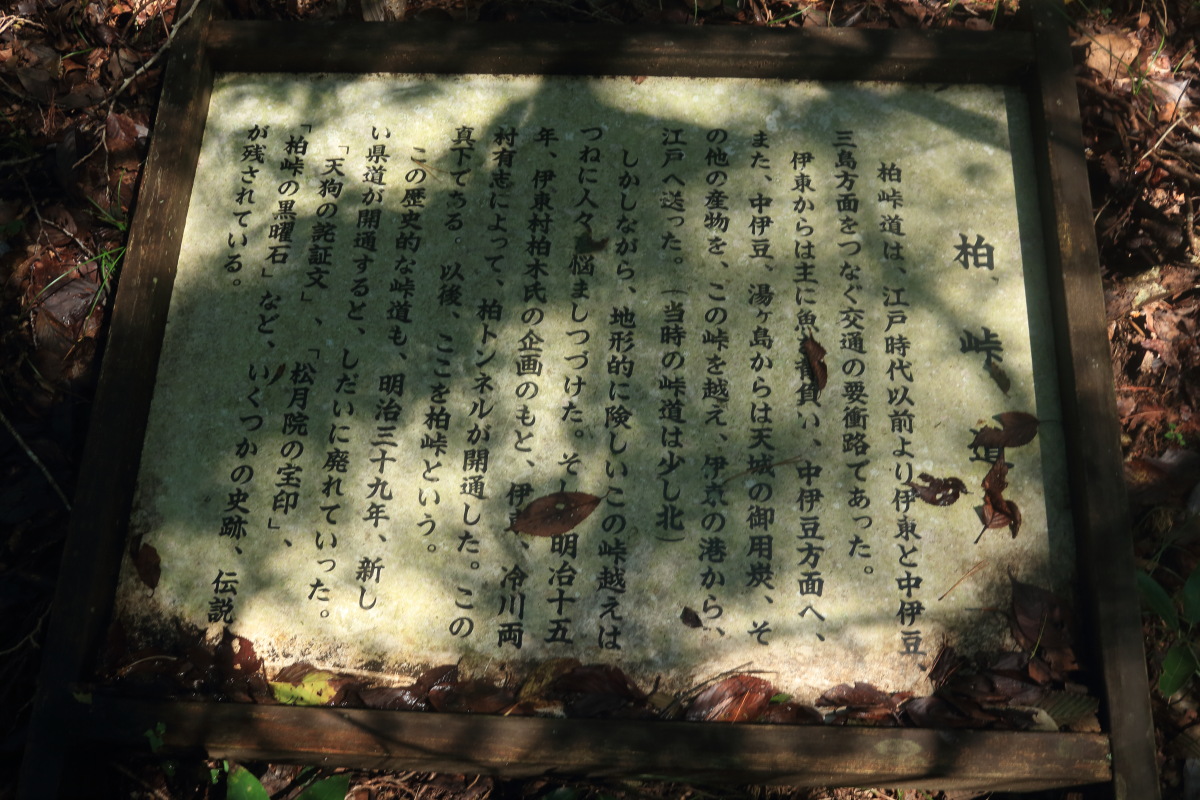 柏峠道
柏峠道は、江戸時代以前より伊東と中伊豆、
三島方面をつなぐ交通の要衝路であった。
伊東からは主に魚背負い、中伊豆方面へ、
また、中伊豆、湯ヶ島からは天城の御用炭、そ
の他の産物を、この峠を越え、伊東の港から、
江戸へ送った。（当時の峠道は少し北）
しかしながら、地形的に険しいこの峠越えは
つねに人々悩ましつづけた。そ明治十五
年、伊東村柏木氏の企画のもと、伊東、冷川両
村有志によって、柏トンネルが開通した。この
真下である。以後、ここを柏峠という。
この歴史的な峠道も、明治三十九年、新し
い県道が開通すると、しだいに廃れていった。
「天狗の詫証文」、「松月院の宝印」、
「柏峠の黒曜石」など、いくつかの史跡、伝説
が残されている。